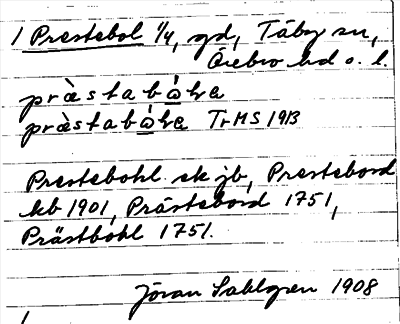 1 Prestebol 1/4, gd, Täby sn,
Örebro hd o. l.
præ̀stabɷ́ɫɐ
præ̀stabɷ́ɫɐ TrMS 1913
Prestebohl sk jb, Prestebord
kb 1901, Prästebord 1751,
Prästbohl 1751.
Jöran Sahlgren 1908
/